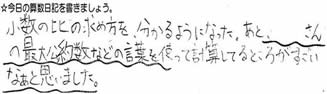 ★今日の算数日記を書きましょう。
小数の比の求め方を、分かるようになった。あと、 さん
へ最大公約数などの言葉を使って計算してるところがすごい
なぁと思いました。